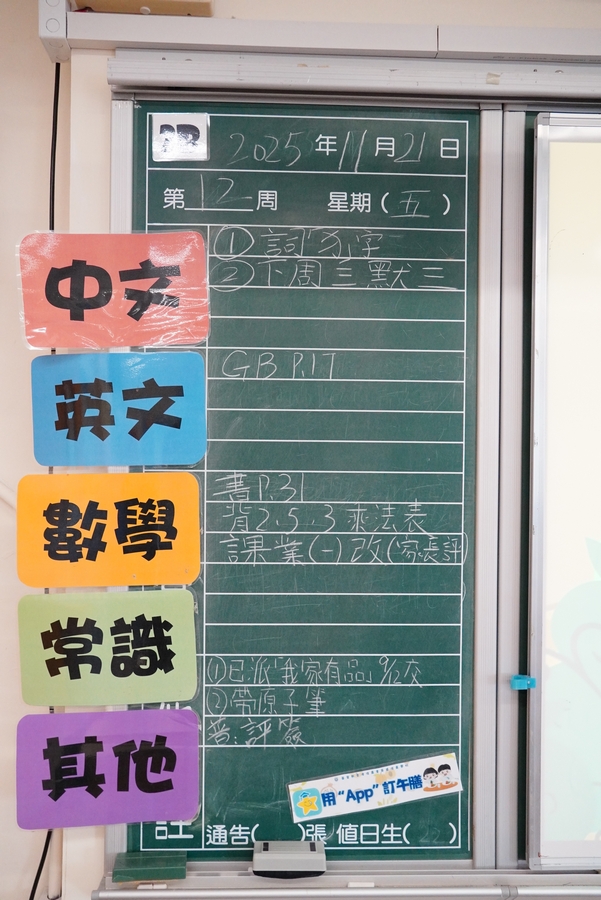 2025年11月21日
第12周 星期(五)
中文
①詞's'字
②下周三默三
英文
GB P.17
數學
書P.31
背2.5.3乘法表
課業(一)改(家長評)
常識
其他
①已派「我家有品」9/12交
②帶原子筆
普:評簽
用“App”訂午膳
註 通告( )張 值日生( )